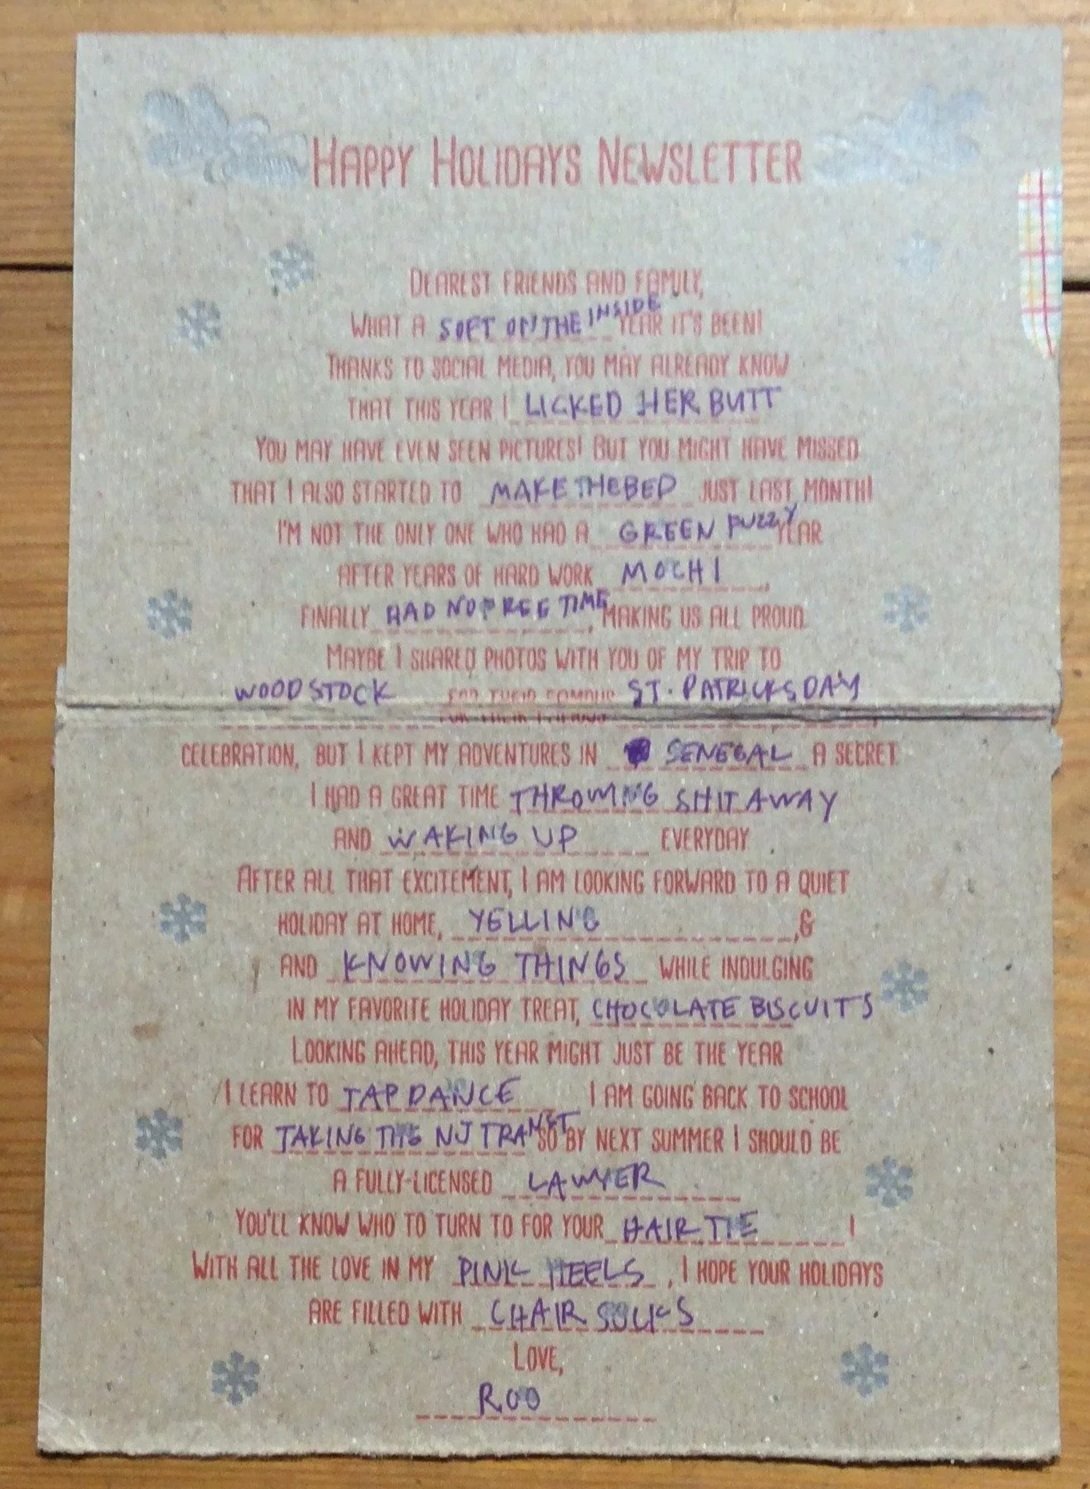 HAPPY HOLIDAYS NEWSLETTER
DEAREST FRIENDS AND FAMILY,
WHAT A SOFT ON THE INSIDE YEAR IT'S BEEN!
THANKS TO SOCIAL MEDIA, YOU MAY ALREADY KNOW
THAT THIS YEAR I LICKED HER BUTT
YOU MAY HAVE EVEN SEEN PICTURES! BUT YOU MIGHT HAVE MISSED
THAT I ALSO STARTED TO MAKE THE BED JUST LAST MONTH!
I'M NOT THE ONLY ONE WHO HAD A GREEN FUZZY YEAR
AFTER YEARS OF HARD WORK MOCHI,
FINALLY HAD NO FREE TIME, MAKING US ALL PROUD.
MAYBE I SHARED PHOTOS WITH YOU OF MY TRIP TO
WOODSTOCK FOR THEIR FAMOUS ST. PATRICKS DAY
CELEBRATION, BUT I KEPT MY ADVENTURES IN SENEGAL A SECRET.
I HAD A GREAT TIME THROWING SHIT AWAY
AND WAKING UP EVERYDAY.
AFTER ALL THAT EXCITEMENT, I AM LOOKING FORWARD TO A QUIET
HOLIDAY AT HOME, YELLING,&
AND KNOWING THINGS WHILE INDULGING
IN MY FAVORITE HOLIDAY TREAT, CHOCOLATE BISCUITS
LOOKING AHEAD, THIS YEAR MIGHT JUST BE THE YEAR
I LEARN TO TAP DANCE I AM GOING BACK TO SCHOOL
FOR TAKING THE NJ TRANSIT SO BY NEXT SUMMER I SHOULD BE
A FULLY-LICENSED LAWYER
YOU'LL KNOW WHO TO TURN TO FOR YOUR HAIR TIE!
WITH ALL THE LOVE IN MY PINK HEELS, I HOPE YOUR HOLIDAYS
ARE FILLED WITH CHAIR SOCKS
LOVE,
ROO